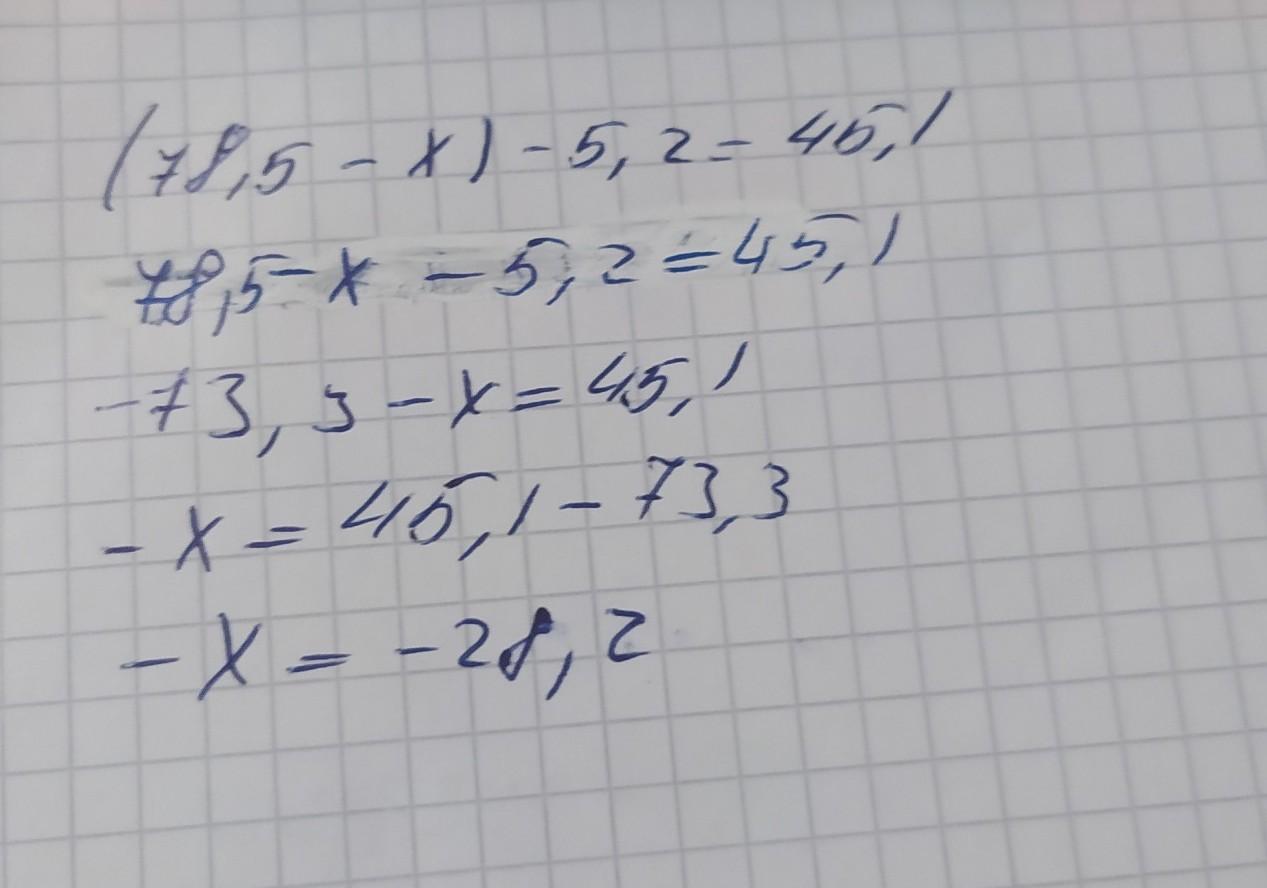 (78,5 - x) - 5,2 = 45,1
78,5 - x - 5,2 = 45,1
-73,3 - x = 45,1
- x = 45,1 - 73,3
- x = -28,2